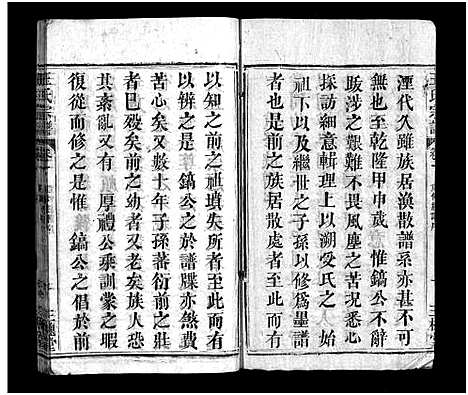 湮代久雖族居渙散譜系亦甚不可
無也至乾隆甲申歲 惟鎬公不辭
跋涉之艱難不畏風塵之苦况悉心
採訪細意輯理上以溯受氏之 始
祖下以及繼世之子孫以修為墨譜
者也是前族居散處者至此而有
以知之前之祖墳失所者至此而有
以辨之是 鎬公之於譜牒亦煞費
苦心矣又數十年子孫蕃衍前之壯
者巳殁矣前之幼者又老矣族人恐
其紊亂又有 厚禮公乘訓蒙之暇
復從而修之是惟 鎬公之倡於前
王氏宗譜
卷一
三槐堂